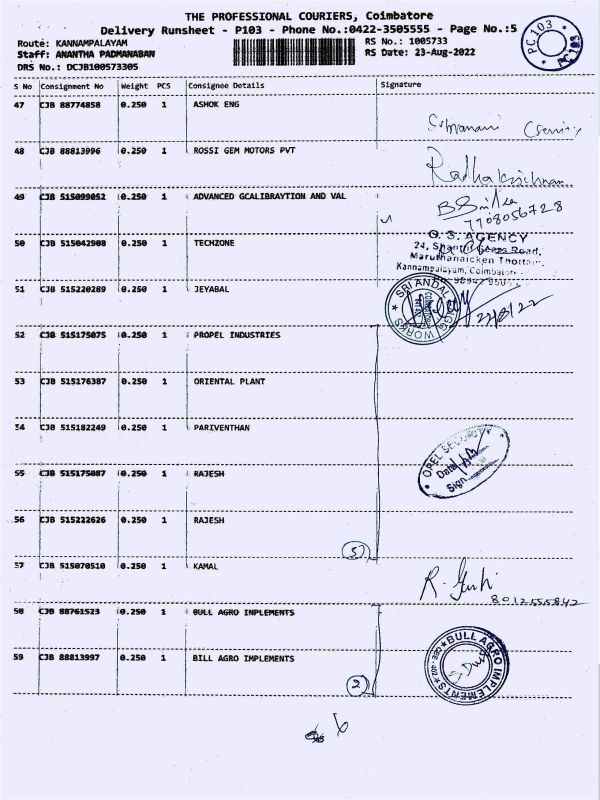 THE PROFESSIONAL COURIERS, Coimbatore
Delivery Runsheet - P103 - Phone No.:0422-3505555 - Page No.:5
Route: KANNAMPALAYAM
RS No.: 1005733
Staff: ANANTHA PADMANABAN
RS Date: 23-Aug-2022
DRS No.: DCJB100573305
PC 103
PC 103
S No Consignment No Weight PCS Consignee Details Signature
47 CJB 88774858 0.250 1 ASHOK ENG
48 CJB 88813996 0.250 1 ROSSI GEM MOTORS PVT
Radhakrishnan
49 CJB 515099052 0.250 1 ADVANCED GCALIBRAYTION AND VAL
7708056728
50 CJB 515042908 0.250 1 TECHZONE
G. S. AGENCY
24, Shanthi Gears Road,
Maruthanaicken Thottam,
Kannampalayam, Coimbatore
51 CJB 515220289 0.250 1 JEYABAL
SRI ANDAL ENGG WORKS
23/8/22
52 CJB 515175075 0.250 1 PROPEL INDUSTRIES
53 CJB 515176387 0.250 1 ORIENTAL PLANT
54 CJB 515182249 0.250 1 PARIVENTHAN
OPEL SECURITY
Date
Sign
55 CJB 515175087 0.250 1 RAJESH
56 CJB 515222626 0.250 1 RAJESH
5
57 CJB 515070510 0.250 1 KAMAL
8012555842
58 CJB 88761523 0.250 1 BULL AGRO INPLEMENTS
59 CJB 88813997 0.250 1 BILL AGRO IMPLEMENTS
2
BULL AGRO IMPLEMENTS
6